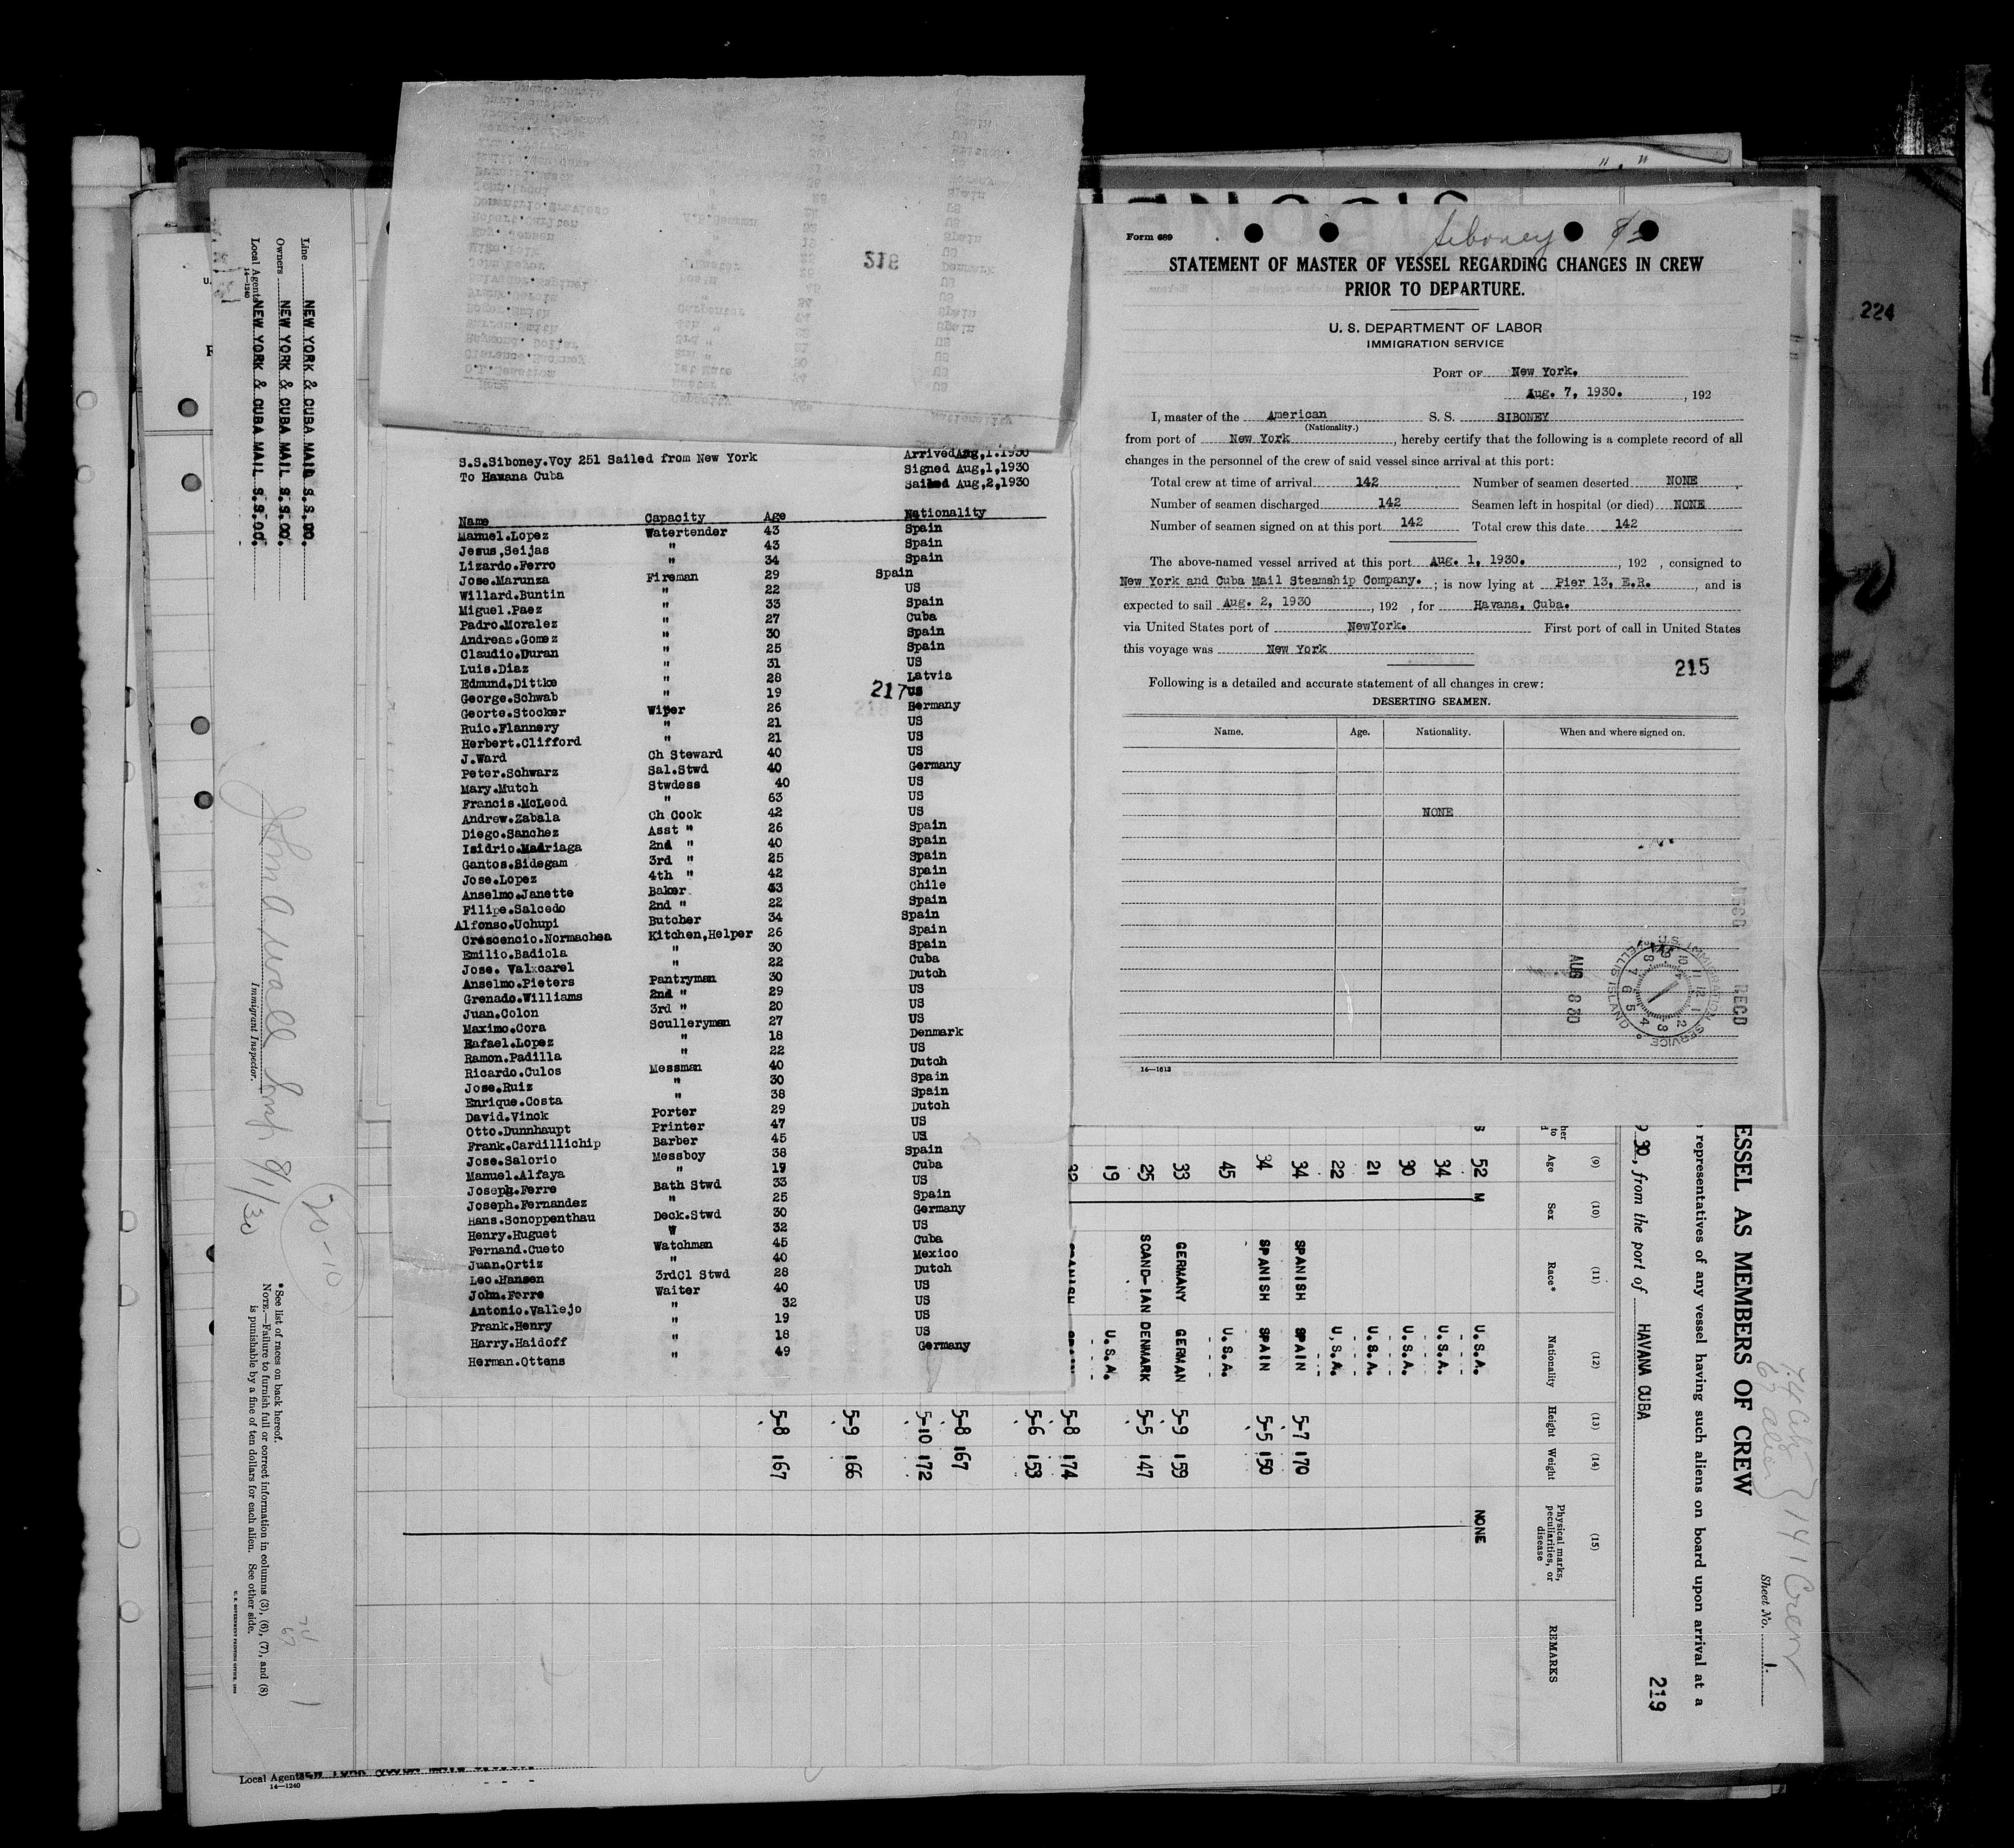 216
S.S.Siboney.Voy 251 Sailed from New York
To Hawana Cuba
Arrived Aug,1.1930
Signed Aug,1,1930
Sailed Aug,2,1930
Name Capacity Age Nationality
Manuel.Lopez Watertender 43 Spain
Jesus,Seijas " 43 Spain
Lizardo.Ferro " 34 Spain
Jose.Marunza Fireman 29 Spain
Willard.Buntin " 22 US
Miguel.Paez " 33 Spain
Padro.Moralez " 27 Cuba
Andreas.Gomez " 30 Spain
Claudio.Duran " 25 Spain
Luis.Diaz " 31 US
Edmund.Dittke " 28 Latvia
George.Schwab " 19 US
217
Georte.Stocker Wiper 26 Germany
Ruic.Flannery " 21 US
Herbert.Clifford " 21 US
J.Ward Ch Steward 40 US
Peter.Schwarz Sal.Stwd 40 Germany
Mary.Mutch Stwdess 40 US
Francis.McLeod " 63 US
Andrew.Zabala Ch Cook 42 US
Diego.Sanchez Asst " 26 Spain
Isidrio.Madriaga 2nd " 40 Spain
Gantos.Sidegam 3rd " 25 Spain
Jose.Lopez 4th " 42 Spain
Anselmo.Janette Baker 43 Chile
Filipe.Salcedo 2nd " 22 Spain
Alfonso.Uchupi Butcher 34 Spain
Crescencio.Normachea Kitchen,Helper 26 Spain
Emilio.Badiola " 30 Spain
Jose. Valxcarel " 22 Cuba
Anselmo.Pieters Pantryman 30 Dutch
Grenado.Williams 2nd " 29 US
Juan.Colon 3rd " 20 US
Maximo.Cora Sculleryman 27 US
Rafael.Lopez " 18 Denmark
Ramon.Padilla " 22 US
Ricardo.Culos Messman 40 Dutch
Jose.Ruiz " 30 Spain
Enrique.Costa " 38 Spain
David.Vinck Porter 29 Dutch
Otto.Dunnhaupt Printer 47 US
Frank.Cardillichip Barber 45 US
Jose.Salorio Messboy 38 Spain
Manuel.Alfaya " 19 Cuba
Joseph.Ferre Bath Stwd 33 US
Joseph.Fernandez " 25 Spain
Hans.Schoppenthau Deck.Stwd 30 Germany
Henry.Huguet W 32 US
Fernand.Cueto Watchman 45 Cuba
Juan.Ortiz " 40 Mexico
Leo.Hansen 3rdCl Stwd 28 Dutch
John.Ferre Waiter 40 US
Antonio.Vallejo " 32 US
Frank.Henry " 19 US
Harry.Haidoff " 18 US
Herman.Ottens " 49 Germany
Form 689
Siboney
STATEMENT OF MASTER OF VESSEL REGARDING CHANGES IN CREW
PRIOR TO DEPARTURE.
U. S. DEPARTMENT OF LABOR
IMMIGRATION SERVICE
PORT OF New York.
Aug. 7, 1930. , 192
I, master of the American S. S. SIBONEY
(Nationality.)
from port of New York , hereby certify that the following is a complete record of all
changes in the personnel of the crew of said vessel since arrival at this port:
Total crew at time of arrival 142 Number of seamen deserted NONE
Number of seamen discharged 142 Seamen left in hospital (or died) NONE
Number of seamen signed on at this port 142 Total crew this date 142
The above-named vessel arrived at this port Aug. 1, 1930. , 192 , consigned to
New York and Cuba Mail Steamship Company. ; is now lying at Pier 13, E.R. , and is
expected to sail Aug. 2, 1930 , 192 , for Havana, Cuba.
via United States port of NewYork. First port of call in United States
this voyage was New York
215
Following is a detailed and accurate statement of all changes in crew:
DESERTING SEAMEN.
Name. Age. Nationality. When and where signed on.
NONE
AUG 8 30
U.S. IMMIGRATION SERVICE
ELLIS ISLAND
RECD
14—1613
224
ESSEL AS MEMBERS OF CREW
Sheet No. 1.
141 Crew
representatives of any vessel having such aliens on board upon arrival at a
30, from the port of HAVANA CUBA
219
(9) (10) (11) (12) (13) (14) (15)
Age Sex Race* Nationality Height Weight Physical marks, peculiarities, or disease REMARKS
52 M U.S.A. NONE
34 U.S.A.
30 U.S.A.
21 U.S.A.
22 U.S.A.
34 SPANISH SPAIN 5-7 170
34 SPANISH SPAIN 5-5 150
45 U.S.A.
33 GERMANY GERMAN 5-9 159
25 SCAND-IAN DENMARK 5-5 147
19 U.S.A.
5-8 174
5-6 153
5-8 167
5-10 172
5-9 166
5-8 167
Line NEW YORK & CUBA MAIL S.S.CO.
Owners NEW YORK & CUBA MAIL S.S.CO.
Local Agents NEW YORK & CUBA MAIL S.S.CO.
14—1240
Immigrant Inspector.
20-10
*See list of races on back hereof.
NOTE.—Failure to furnish full or correct information in columns (3), (6), (7), and (8)
is punishable by a fine of ten dollars for each alien. See other side.
74
67
Local Agents
14—1240